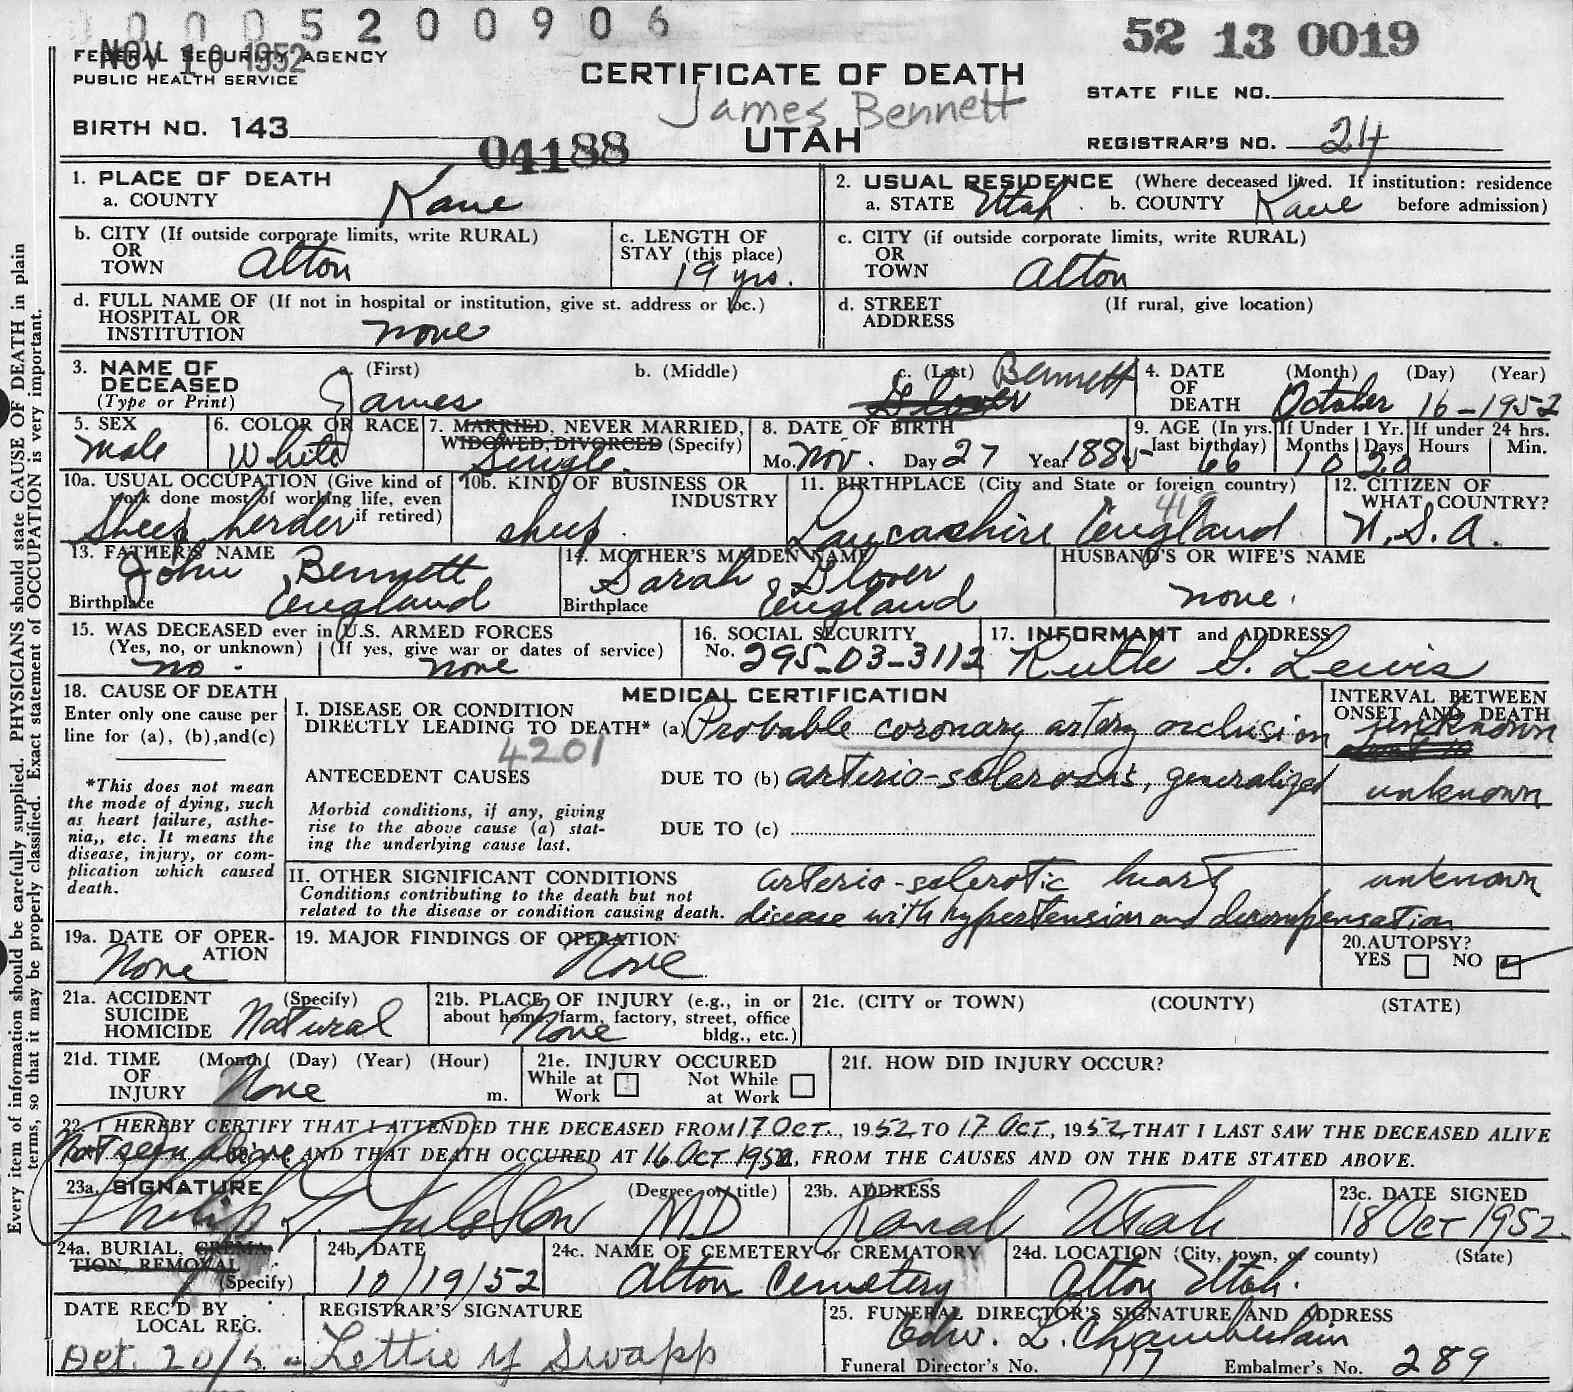 00005200906
52 13 0019
NOV 10 1952
FEDERAL SECURITY AGENCY
PUBLIC HEALTH SERVICE
CERTIFICATE OF DEATH
James Bennett
UTAH
STATE FILE NO.
BIRTH NO. 143
04188
REGISTRAR'S NO. 24
Every item of information should be carefully supplied. PHYSICIANS should state CAUSE OF DEATH in plain
terms, so that it may be properly classified. Exact statement of OCCUPATION is very important.
1. PLACE OF DEATH
a. COUNTY Kane
2. USUAL RESIDENCE (Where deceased lived. If institution: residence
a. STATE Utah b. COUNTY Kane before admission)
b. CITY (If outside corporate limits, write RURAL)
OR
TOWN Alton
c. LENGTH OF
STAY (this place)
19 yrs.
c. CITY (if outside corporate limits, write RURAL)
OR
TOWN Alton
d. FULL NAME OF (If not in hospital or institution, give st. address or loc.)
HOSPITAL OR
INSTITUTION none
d. STREET (If rural, give location)
ADDRESS
3. NAME OF
DECEASED
(Type or Print)
a. (First)
James
b. (Middle)
c. (Last) Bennett
Glover
4. DATE (Month) (Day) (Year)
OF
DEATH October 16-1952
5. SEX
Male
6. COLOR OR RACE
White
7. MARRIED, NEVER MARRIED,
WIDOWED, DIVORCED (Specify)
Single.
8. DATE OF BIRTH
Mo. Nov. Day 27 Year 188
9. AGE (In yrs.
last birthday)
66
If Under 1 Yr.
Months Days
10 20
If under 24 hrs.
Hours Min.
10a. USUAL OCCUPATION (Give kind of
work done most of working life, even
if retired)
Sheep herder
10b. KIND OF BUSINESS OR
INDUSTRY
sheep
11. BIRTHPLACE (City and State or foreign country)
Lancashire England
12. CITIZEN OF
WHAT COUNTRY?
U.S.A.
13. FATHER'S NAME
John Bennett
Birthplace England
14. MOTHER'S MAIDEN NAME
Sarah Glover
Birthplace England
HUSBAND'S OR WIFE'S NAME
none.
15. WAS DECEASED ever in U.S. ARMED FORCES
(Yes, no, or unknown) (If yes, give war or dates of service)
no none
16. SOCIAL SECURITY
No. 295-03-3112
17. INFORMANT and ADDRESS
Ruth G. Lewis
18. CAUSE OF DEATH
Enter only one cause per
line for (a), (b),and(c)
*This does not mean
the mode of dying, such
as heart failure, asthe-
nia,, etc. It means the
disease, injury, or com-
plication which caused
death.
MEDICAL CERTIFICATION
I. DISEASE OR CONDITION
DIRECTLY LEADING TO DEATH* (a) Probable coronary artery occlusion
4201
ANTECEDENT CAUSES DUE TO (b) arterio-sclerosis, generalized
Morbid conditions, if any, giving
rise to the above cause (a) stat-
ing the underlying cause last.
DUE TO (c)
INTERVAL BETWEEN
ONSET AND DEATH
unknown
unknown
II. OTHER SIGNIFICANT CONDITIONS
Conditions contributing to the death but not
related to the disease or condition causing death.
arterio-sclerotic heart unknown
disease with hypertension and decompensation
19a. DATE OF OPER-
ATION
None
19. MAJOR FINDINGS OF OPERATION
None
20. AUTOPSY?
YES NO
21a. ACCIDENT (Specify)
SUICIDE
HOMICIDE Natural
21b. PLACE OF INJURY (e.g., in or
about home, farm, factory, street, office
bldg., etc.)
None
21c. (CITY or TOWN) (COUNTY) (STATE)
21d. TIME (Month) (Day) (Year) (Hour)
OF
INJURY None m.
21e. INJURY OCCURED
While at Work
Not While at Work
21f. HOW DID INJURY OCCUR?
22. I HEREBY CERTIFY THAT I ATTENDED THE DECEASED FROM 17 Oct., 1952 TO 17 Oct, 1952 THAT I LAST SAW THE DECEASED ALIVE
Not seen alive AND THAT DEATH OCCURED AT 16 Oct 1952, FROM THE CAUSES AND ON THE DATE STATED ABOVE.
23a. SIGNATURE (Degree or title)
Philip MD
23b. ADDRESS
Kanab Utah
23c. DATE SIGNED
18 Oct 1952.
24a. BURIAL, CREMA-
TION, REMOVAL
(Specify)
24b. DATE
10/19/52
24c. NAME OF CEMETERY or CREMATORY
Alton Cemetery
24d. LOCATION (City, town, or county) (State)
Alton Utah.
DATE REC'D BY
LOCAL REG.
Oct. 20/5
REGISTRAR'S SIGNATURE
Lettie Y Swapp
25. FUNERAL DIRECTOR'S SIGNATURE AND ADDRESS
Edw. L. Chamberlain
Funeral Director's No. 117 Embalmer's No. 289